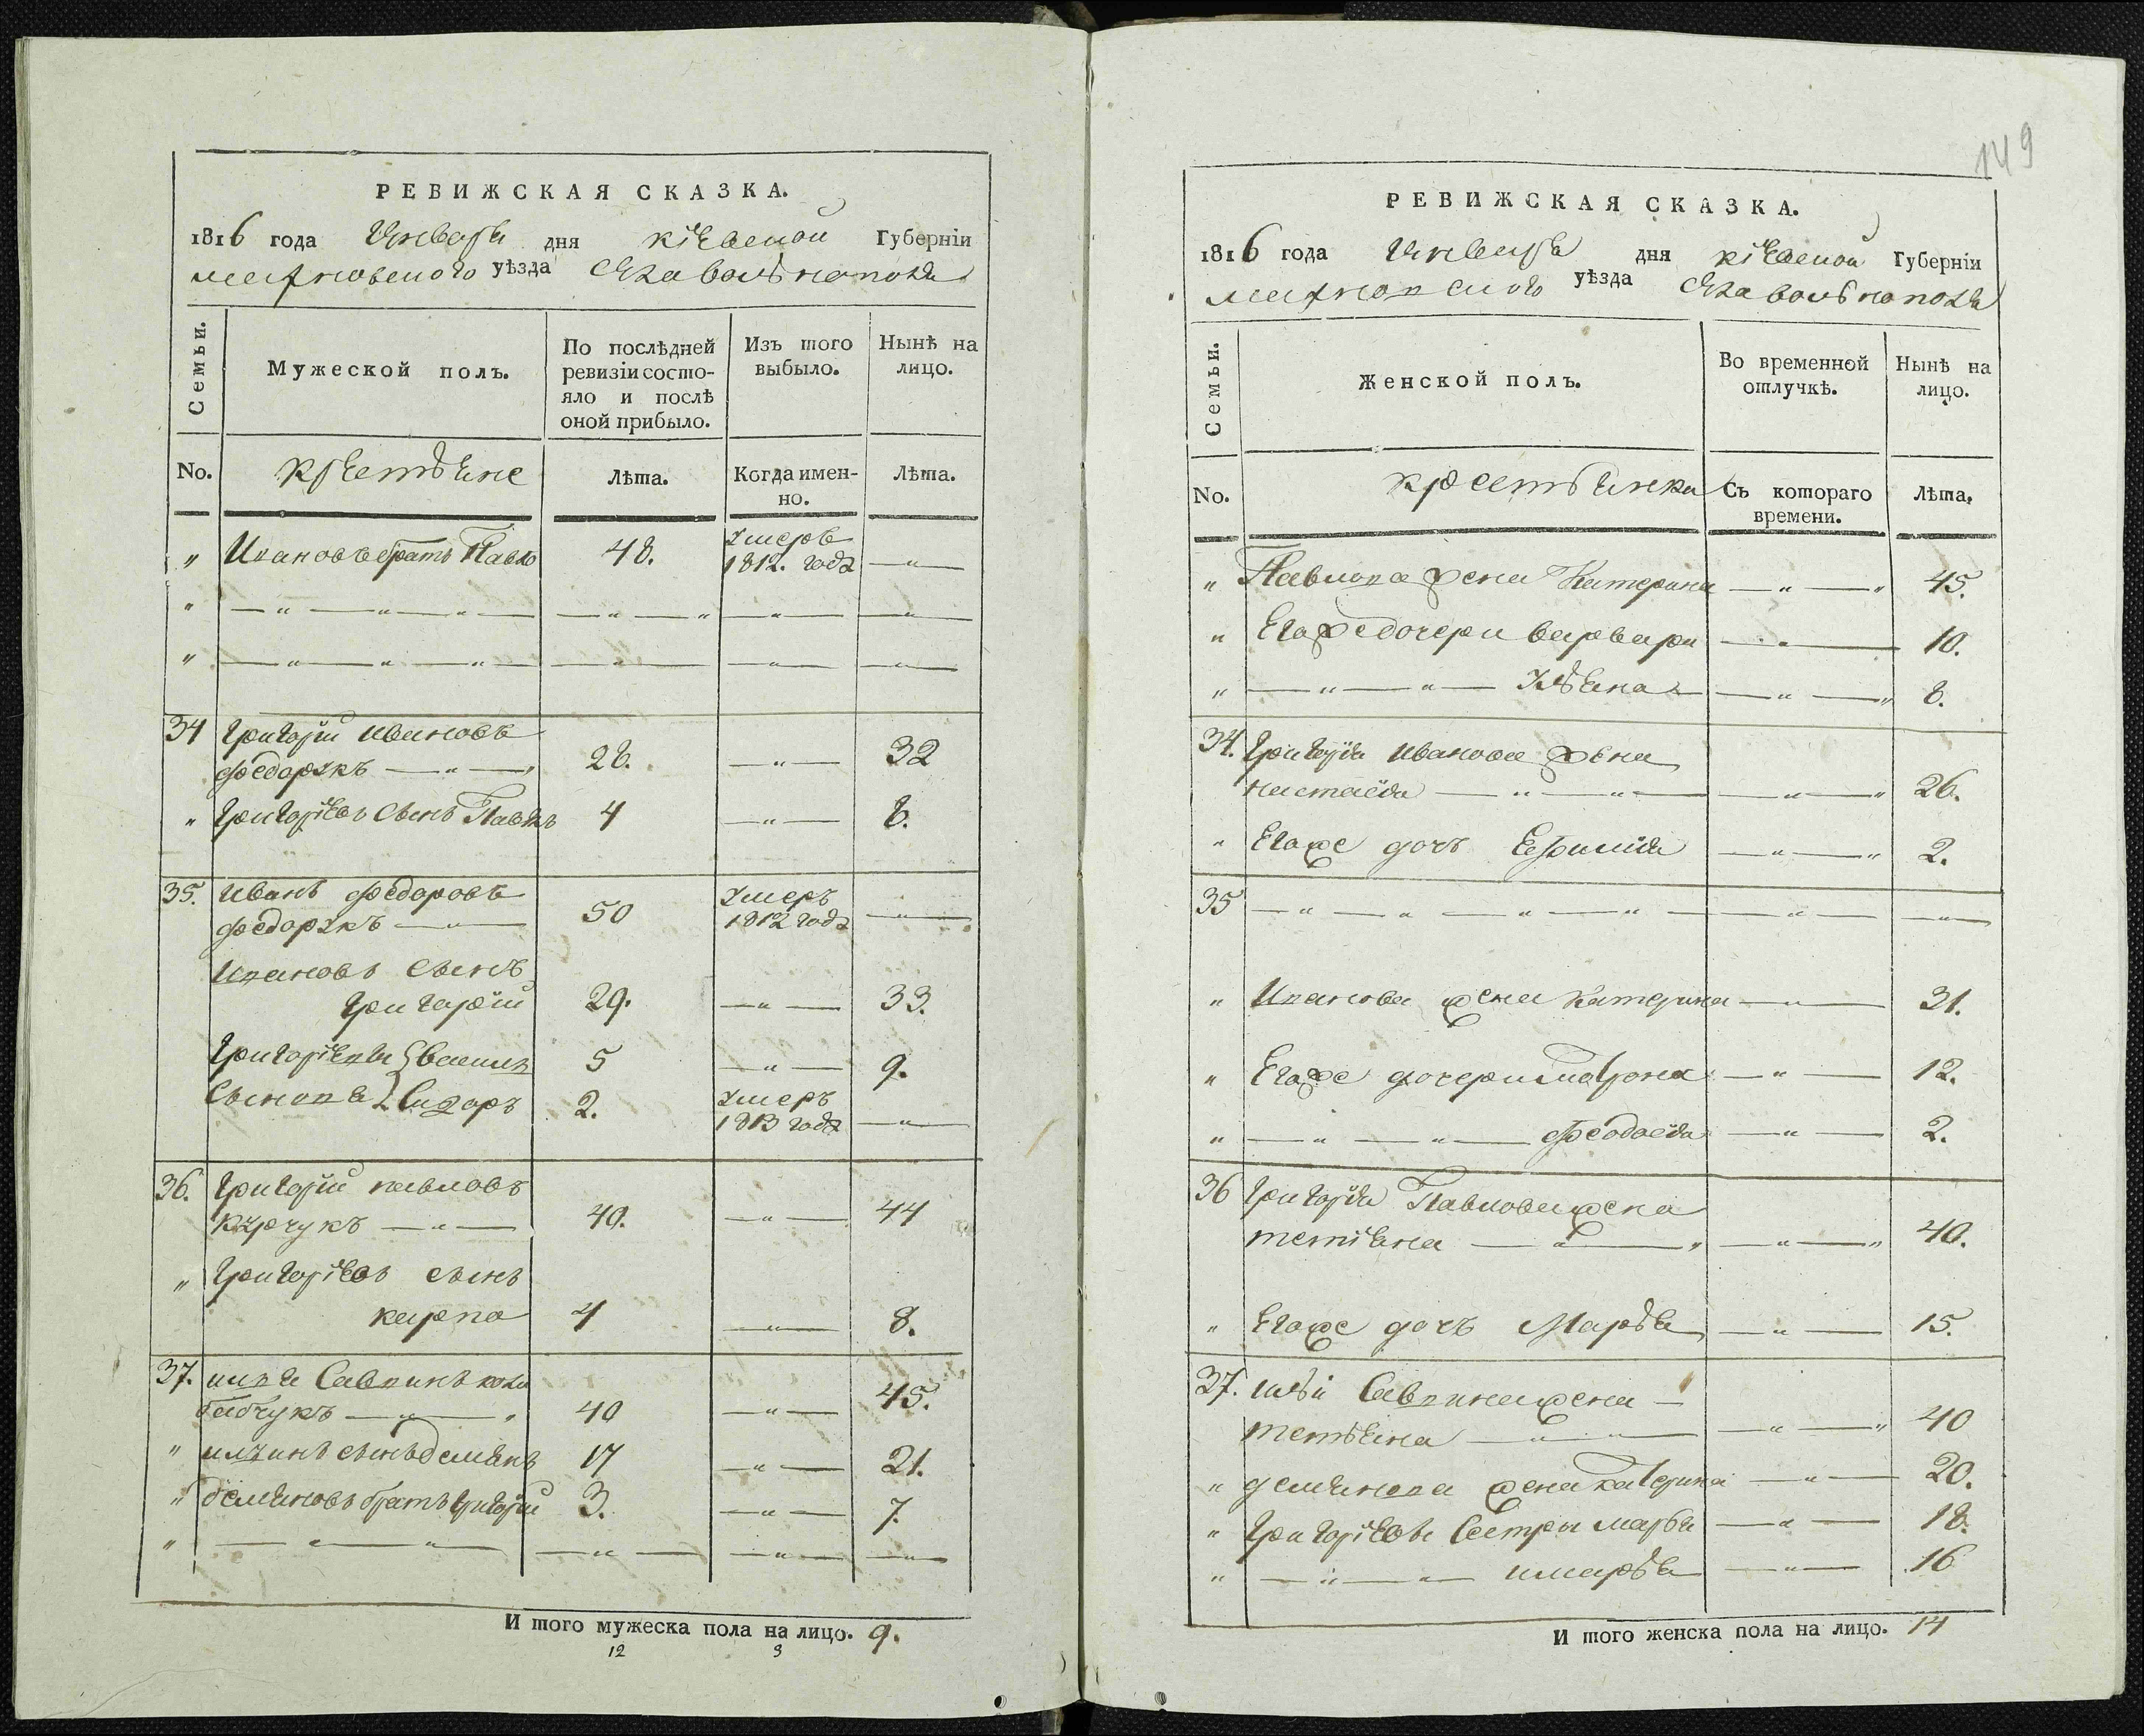 РЕВИЖСКАЯ СКАЗКА.
1816 года Января дня кіевской Губерніи
махновского уѣзда
Семьи.
Мужеской полъ.
По послѣдней ревизіи состояло и послѣ оной прибыло.
Изъ того выбыло.
Нынѣ на лицо.
No.
крестьяне
Лѣта.
Когда именно.
Лѣта.
" Ивановъ братъ Павло 48. умеръ 1812. года — " —
34 Григорій Ивановъ
Федорукъ — " — 28. — " — 32
" Григоріевъ сынъ Павелъ 4 — " — 8.
35. Иванъ Федоровъ
Федорукъ — " — 50 умеръ 1812 года — " —
Ивановъ сынъ
Григорій 29. — " — 33.
Григоріевы Василь 5 — " — 9.
сыновья Сидоръ 2. умеръ 1813 года — " —
36. Григорій павловъ
Курчукъ — " — 40. — " — 44
" Григоріевъ сынъ
карпо 4 — " — 8.
37. Саввинъ
40 — " — 45.
" сынъ демянъ 17 — " — 21.
" демяновъ братъ Григорій 3. — " — 7.
И того мужеска пола на лицо. 9.
12 3
149
РЕВИЖСКАЯ СКАЗКА.
1816 года Января дня кіевской Губерніи
махновского уѣзда
Семьи.
Женской полъ.
Во временной отлучкѣ.
Нынѣ на лицо.
No.
крестьянки
Съ котораго времени.
Лѣта.
" Павлова жена Катерина — " — 45.
" Его же дочери варвара — " — 10.
" — " — " — Ульяна — " — 8.
34. Григорія Иванова жена
настасія — " — " — 26.
" Его же дочь Ефимія — " — 2.
35 — " — " — " — " —
" Иванова жена катерина — " — 31.
" Его же дочери матрона — " — 12.
" — " — " — Феодосія — " — 2.
36 Григорія Павлова жена
татіяна — " — " — 40.
" Его же дочь Марья — " — 15.
37. Саввина жена —
татьяна — " — " — 40
" демянова жена катерина — " — 20.
" Григоріевы сестры марья — " — 18.
" — " — " — имарья — " — 16
И того женска пола на лицо. 14